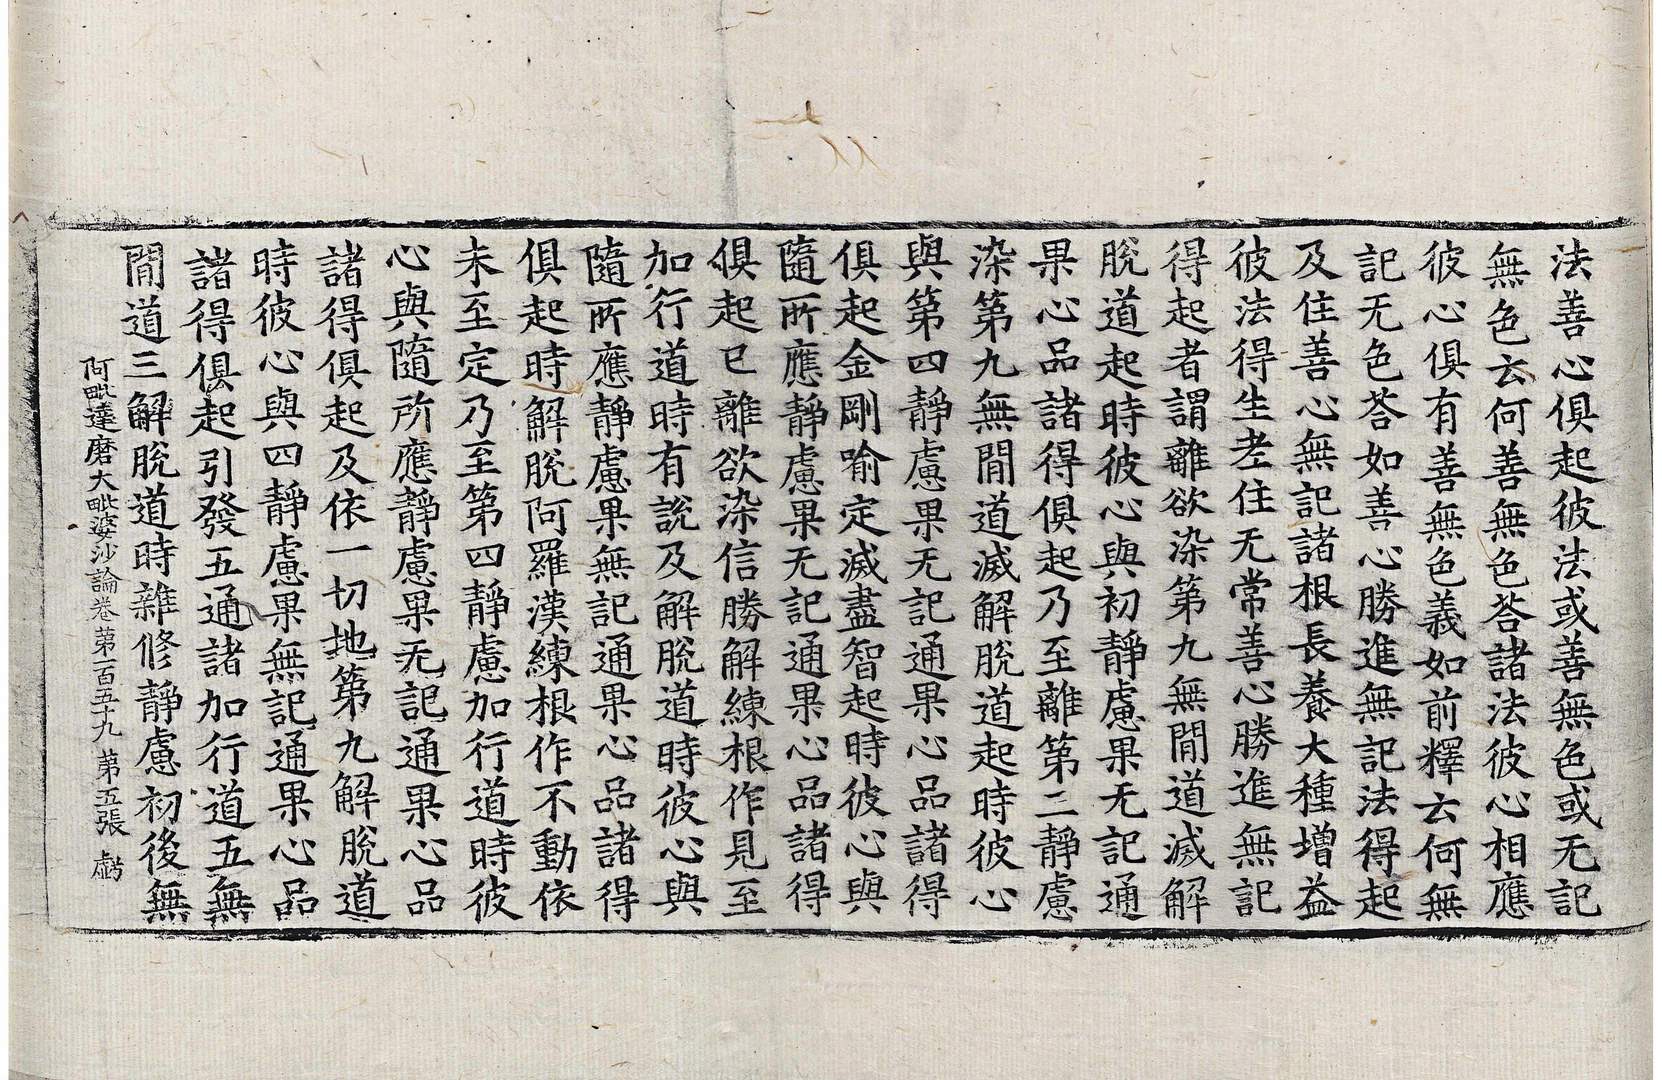 法善心俱起彼法或善無色或无記
無色云何善無色荅諸法彼心相應
彼心俱有善無色義如前釋云何無
記无色荅如善心勝進無記法得起
及住善心無記諸根長養大種增益
彼法得生老住无常善心勝進無記
得起者謂離欲染第九無間道滅解
脫道起時彼心與初靜慮果无記通
果心品諸得俱起乃至離第三靜慮
染第九無間道滅解脫道起時彼心
與第四靜慮果无記通果心品諸得
俱起金剛喻定滅盡智起時彼心與
隨所應靜慮果无記通果心品諸得
俱起已離欲染信勝解練根作見至
加行道時有說及解脫道時彼心與
隨所應靜慮果無記通果心品諸得
俱起時解脫阿羅漢練根作不動依
未至定乃至第四靜慮加行道時彼
心與隨所應靜慮果无記通果心品
諸得俱起及依一切地第九解脫道
時彼心與四靜慮果無記通果心品
諸得俱起引發五通諸加行道五無
間道三解脫道時雜修靜慮初後無
阿毗達磨大毗婆沙論卷第一百五十九 第五張 虧